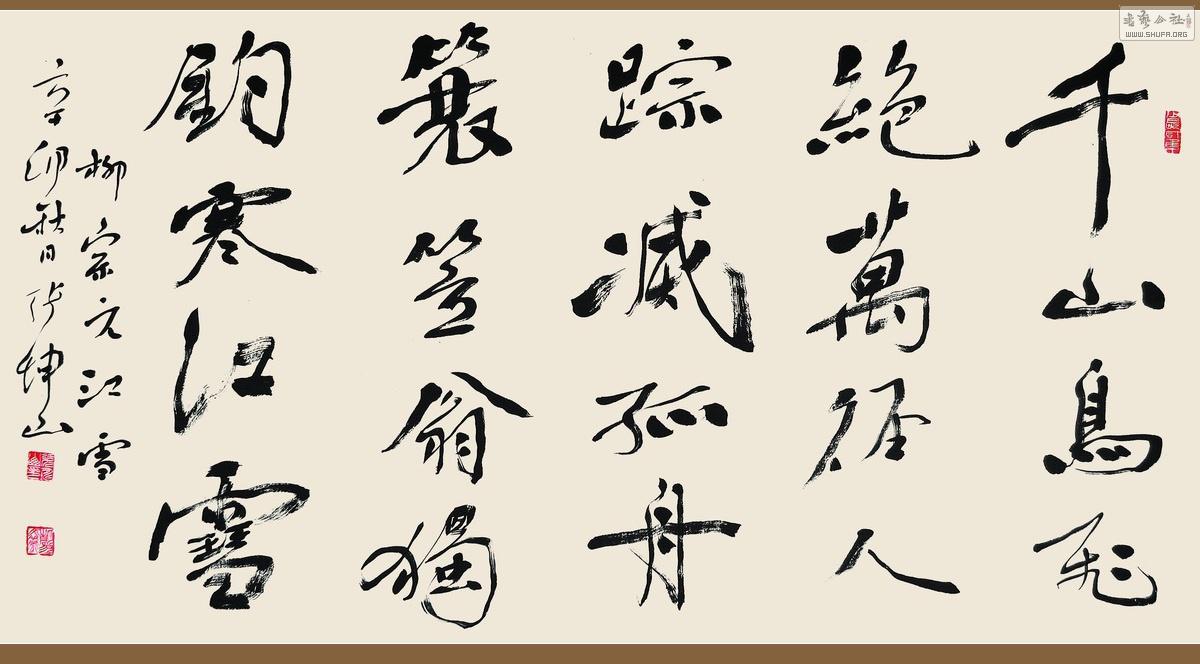 千山鳥飛
絶萬徑人
踪滅孤舟
蓑笠翁獨
釣寒江雪
柳宗元江雪
辛卯秋日张坤山
書藝公社
WWW.SHUFA.ORG